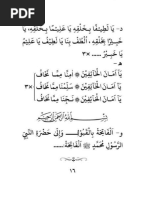 د - يَا لَطِيْفًا بِخَلْقِهِ يَا عَلِيْمًا بِخَلْقِهِ يَا
خَبِيْرًا بِخَلْقِهِ ، اُلْطُفْ بِنَا يَا لَطِيْفُ يَا عَلِيْمُ
يَا خَبِيْرُ ..... ×٣
هـ -
يَا أَمَانَ الْخَائِفِيْنَ ۞ آمِنَّا مِمَّا نَخَافُ
يَا أَمَانَ الْخَائِفِيْنَ ۞ سَلِّمْنَا مِمَّا نَخَافُ ×٣
يَا أَمَانَ الْخَائِفِيْنَ ۞ نَجِّنَا مِمَّا نَخَافُ
بِسْمِ اللهِ الرَّحْمٰنِ الرَّحِيْمِ
و - اَلْفَاتِحَةُ بِالْقَبُوْلِ وَإِلَى حَضْرَةِ النَّبِيِّ
الرَّسُوْلِ مُحَمَّدٍ ﷺ اَلْفَاتِحَةْ .....
١٦